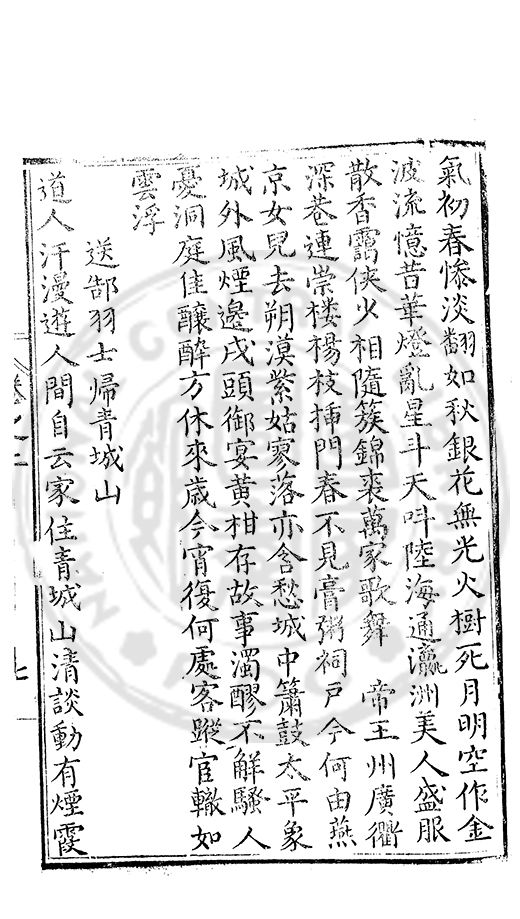 氣初春慘淡翻如秋銀花無光火樹死月明空作金
波流憶昔華燈亂星斗天呌陸海通瀛洲美人盛服
散香靄俠火相隨簇錦裘萬家歌舞 帝王州廣衢
深巷連崇樓楊枝揷門春不見膏粥祠戸今何由燕
京女兒去朔漠紫姑寥落亦含愁城中簫鼓太平象
城外風煙邊戍頭御宴黄柑存故事濁醪不解騷人
憂洞庭佳釀醉方休來歲今宵復何處客蹤宦轍如
雲浮
送郜羽士歸青城山
道人汗漫遊人間自云家住青城山清談動有煙霞
卷之二
七